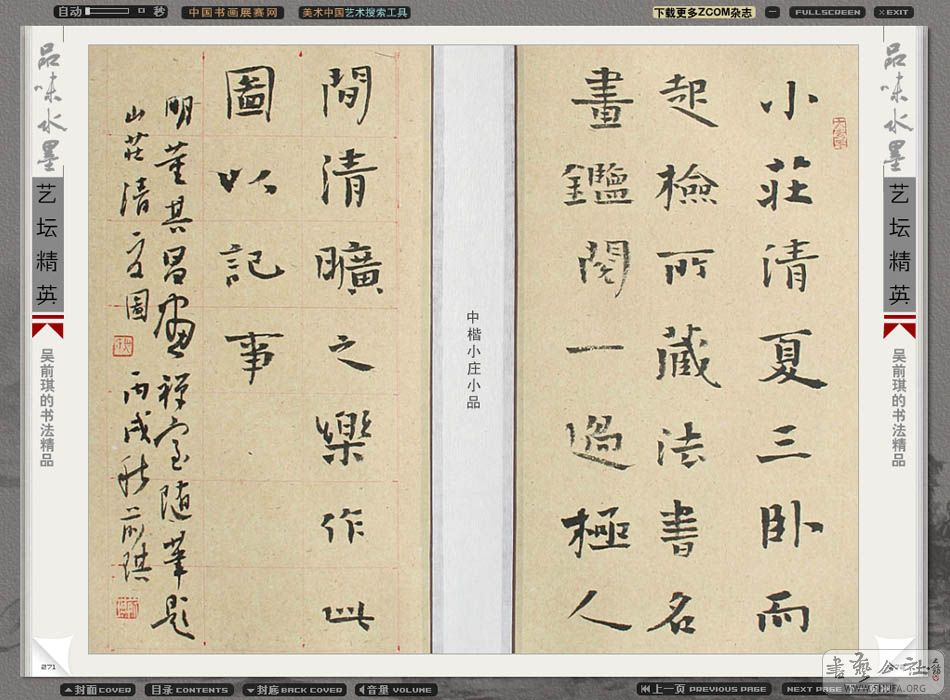 自动 秒
中国书画展赛网
美术中国艺术搜索工具
下载更多ZCOM杂志
FULLSCREEN
×EXIT
品味水墨
艺坛精英
吴前琪的书法精品
小莊清夏三卧而
起檢所藏法書名
畫鑑閱一過極人
中楷小庄小品
間清曠之樂作此
圖以記事
明董其昌畫禅室随筆題
山莊清夏圖
丙戌秋前琪
品味水墨
艺坛精英
吴前琪的书法精品
271
封面COVER
目录CONTENTS
封底BACK COVER
音量VOLUME
上一页PREVIOUS PAGE
NEXT PAGE
書藝公社